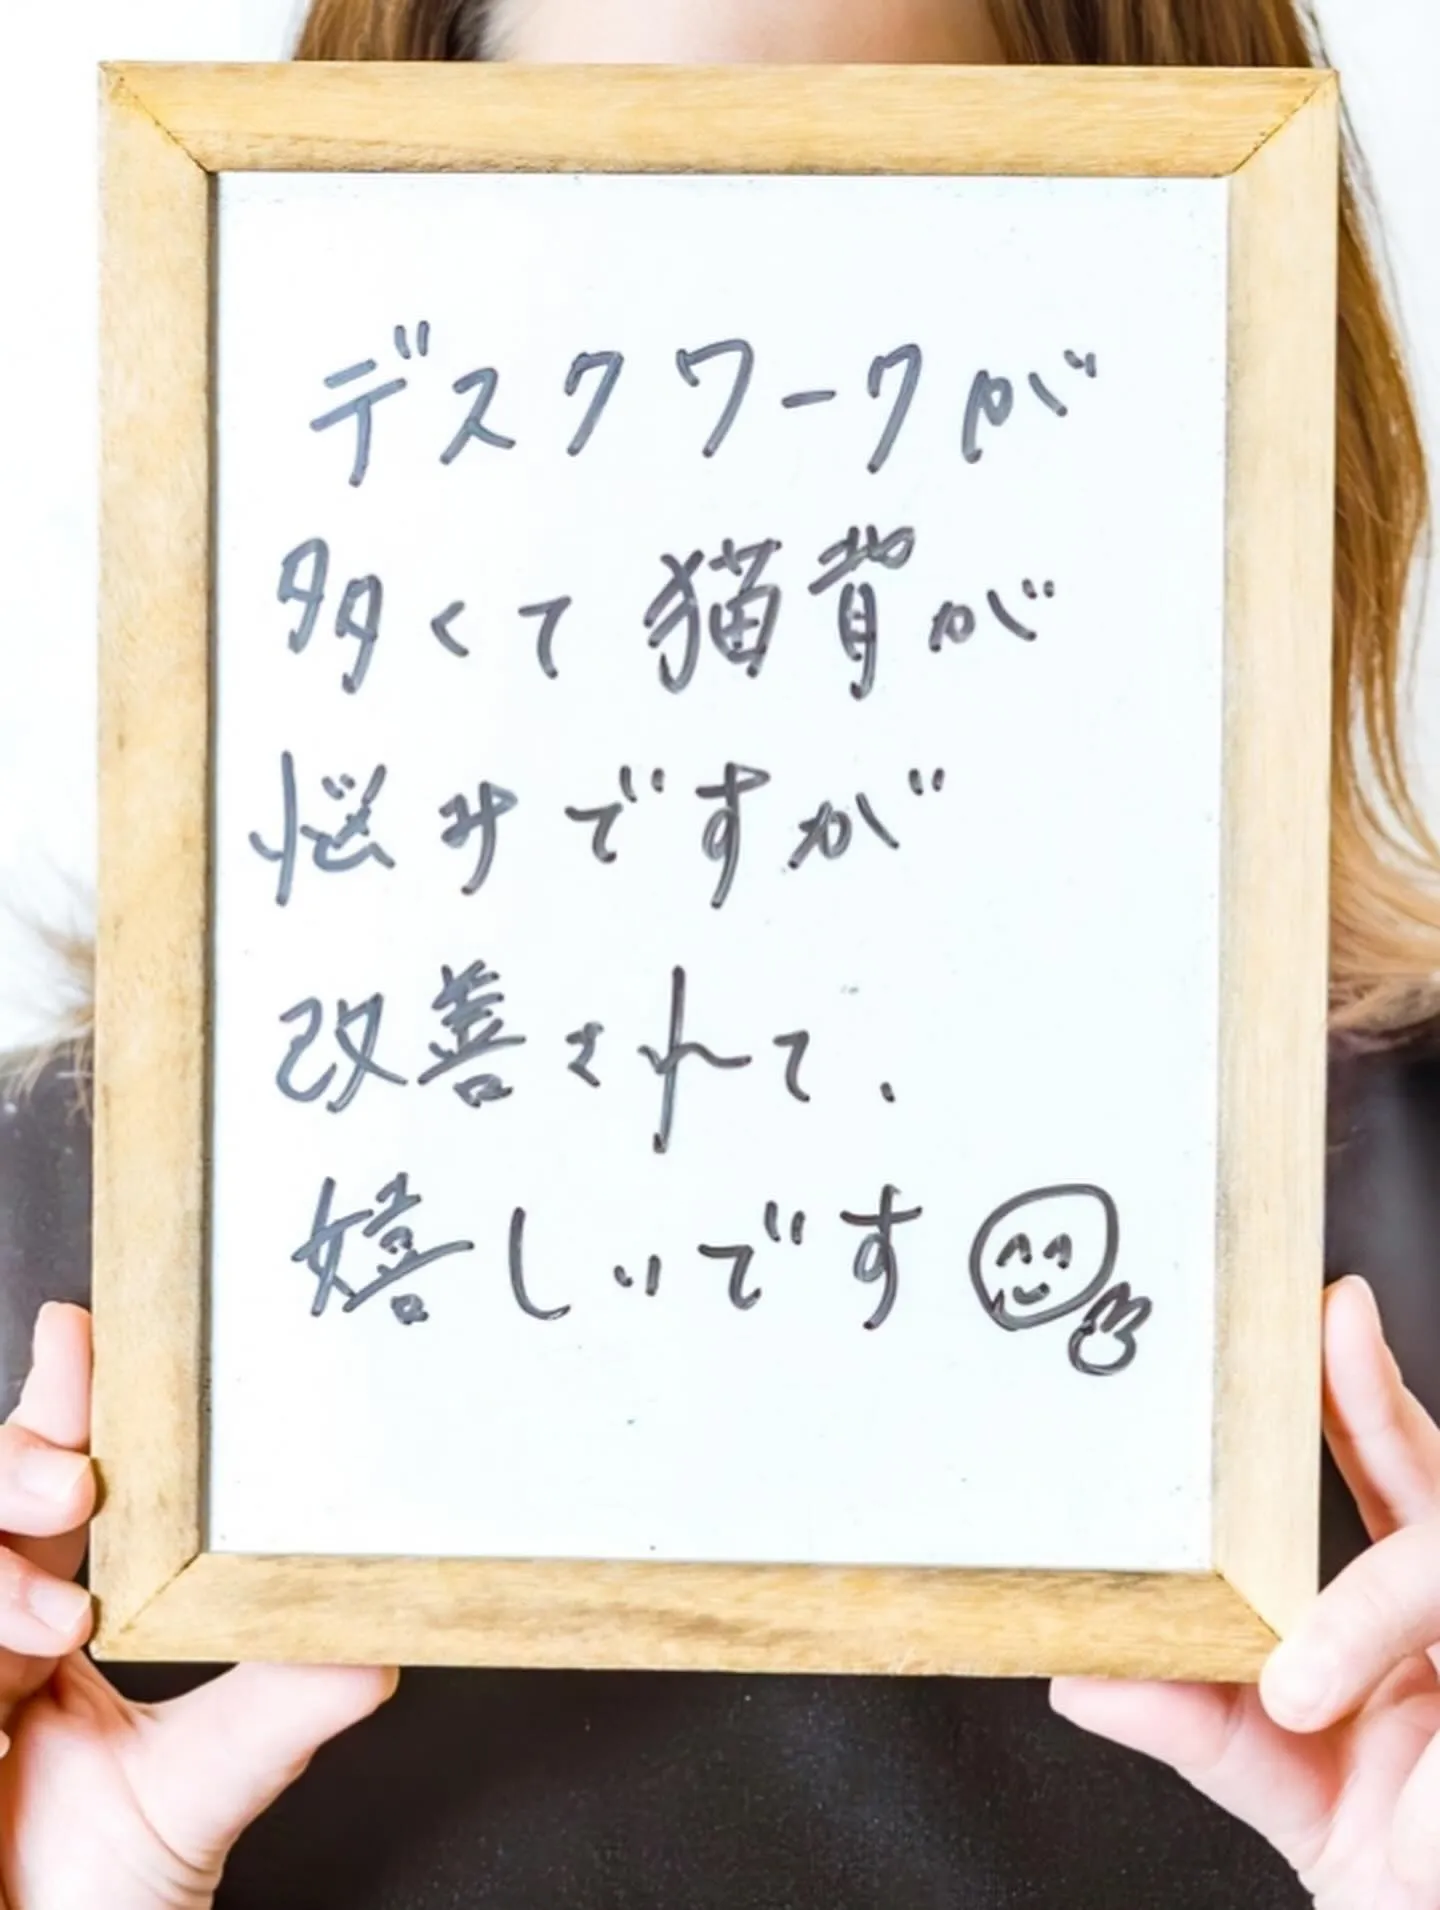 デスクワークが
多くて猫背が
悩みですが
改善されて、
嬉しいです